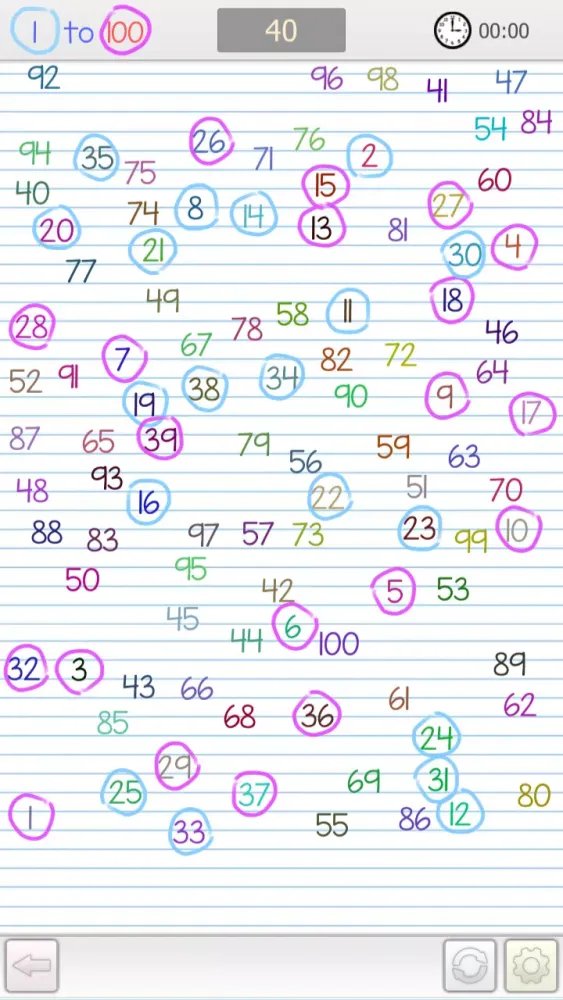 1 to 100 40 00:00
92 96 98 41 47
54 84
94 35 26 76 2
75 71
40 15 60
74 8 14 27
20 13 81
21 30 4
77
49 18
28 58 11
78 46
7 67 82 72
52 91 38 34 64
19 90 9
17
87 65 39 79 59
56 63
93
48 16 22 51 70
88 83 97 57 73 23 99 10
50 95
42 5 53
45
44 6 100
32 3 89
43 66
85 68 36 61 62
24
25 29 37 69 31 80
1 33 55 86 12